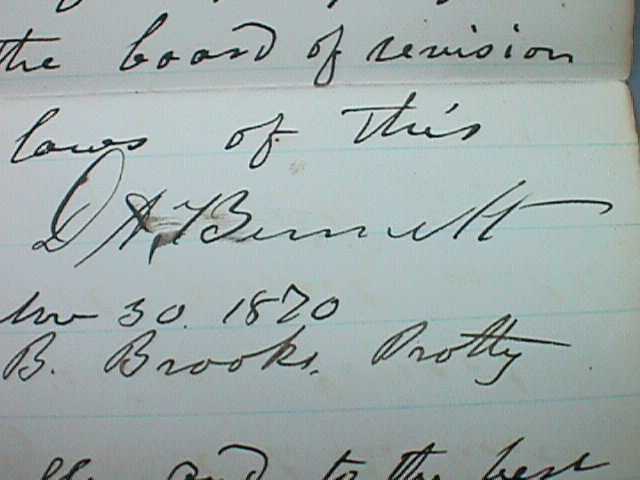 the board of revision
laws of this
D A Bennett
Nov 30. 1870
B. Brooks. Protty
and to the best